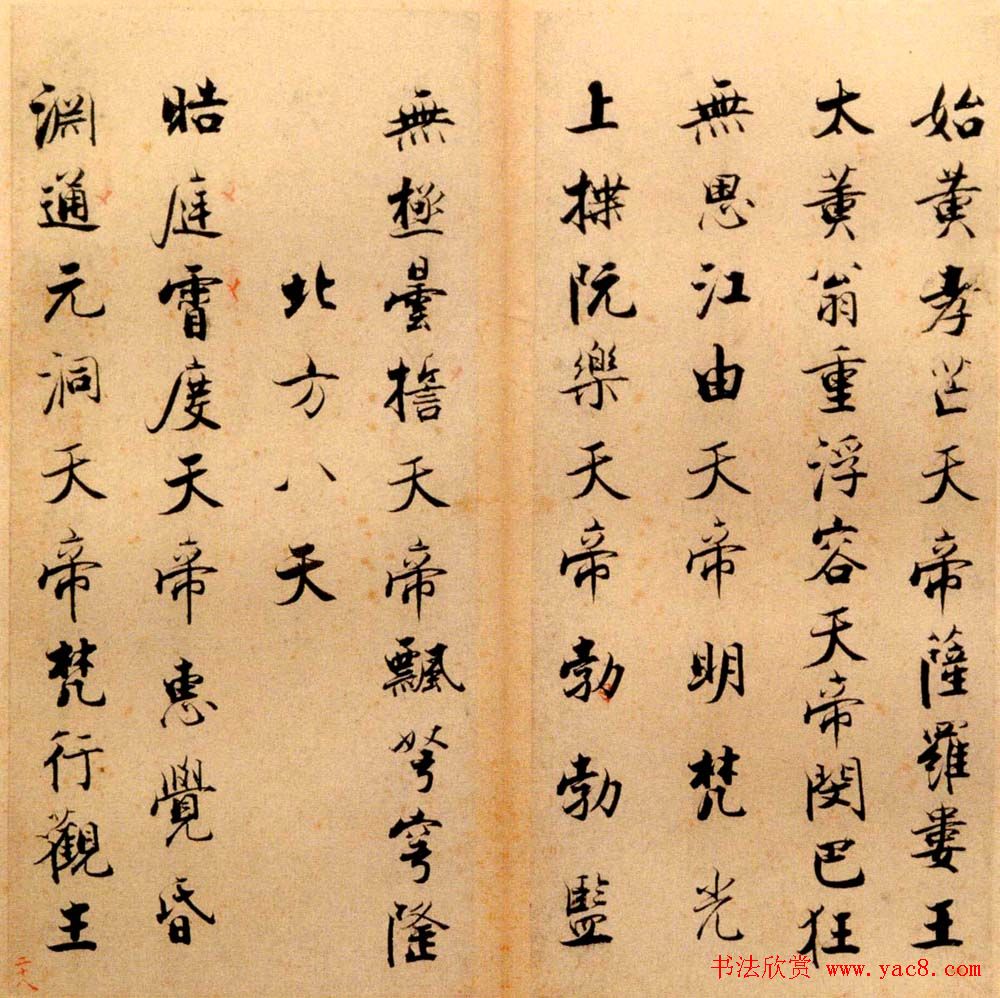 始黄孝芒天帝薩羅婁王
太黄翁重浮容天帝閔巴狂
無思江由天帝明梵光
上揲阮樂天帝勃勃監
無極曇誓天帝飄弩穹隆
北方八天
晧庭霄度天帝恵覺昏
淵通元洞天帝梵行觀生
二十八
书法欣赏 www.yac8.com